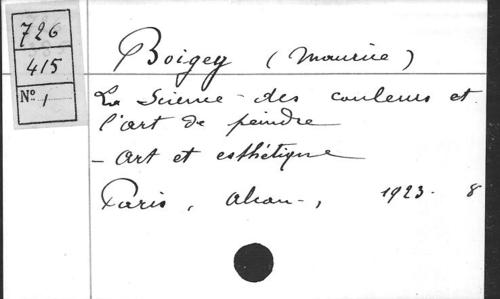 726
415
Nº 1
Boigey (Maurice)
La Science des couleurs et
l'art de peindre
- Art et esthétique
Paris, Alcan-, 1923. 8